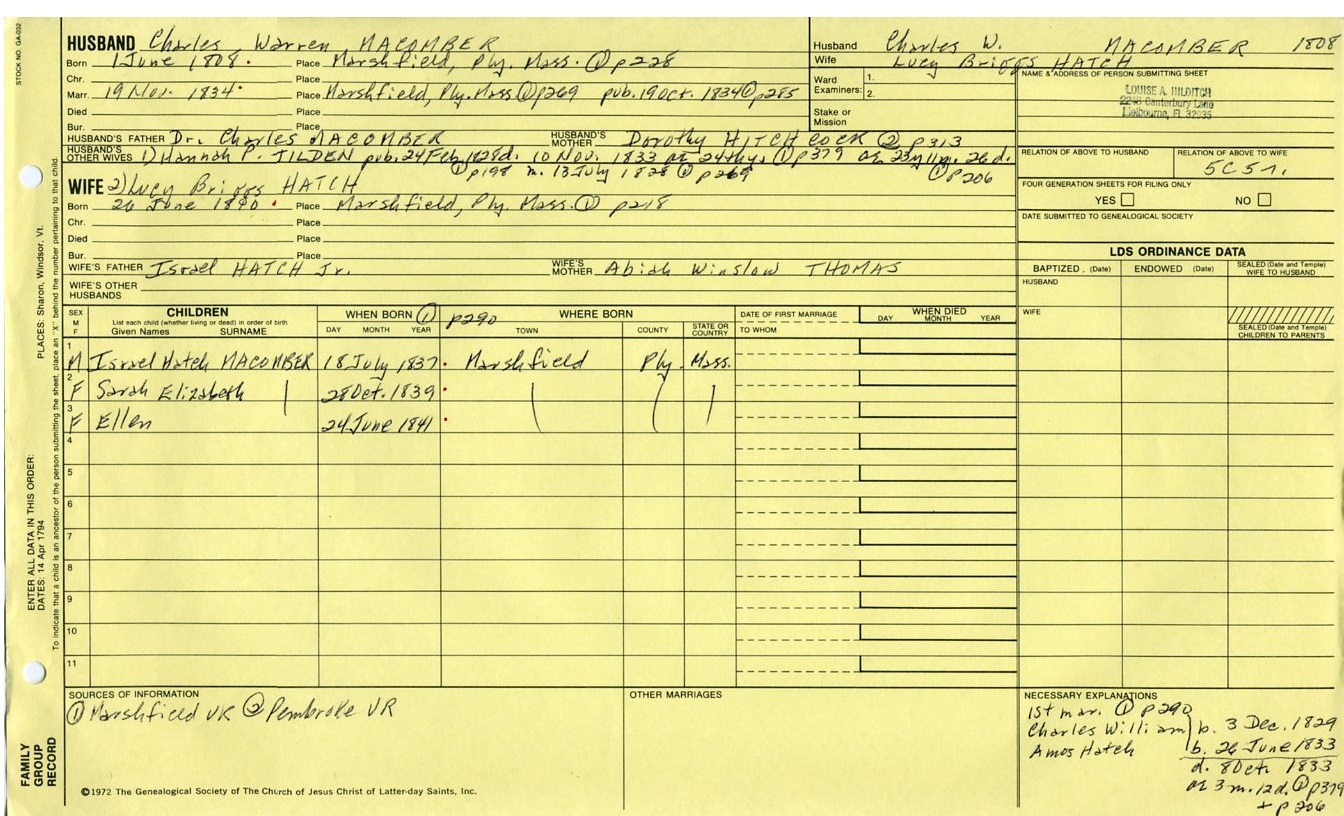 STOCK NO. GA-032
HUSBAND Charles Warren MACOMBER
Born 1 June 1808. Place Marshfield, Ply. Mass. ① p228
Chr. Place
Marr. 19 Nov. 1834. Place Marshfield, Ply. Mass ① p269 pub. 19 Oct. 1834 ① p285
Died Place
Bur. Place
HUSBAND'S FATHER Dr. Charles MACOMBER HUSBAND'S MOTHER Dorothy HITCHCOCK ② p313
HUSBAND'S OTHER WIVES 1) Hannah P. TILDEN pub. 24 Feb. 1828 d. 10 Nov. 1833 ae 24th yr ① p379 ae 23 y 11 m. 26 d.
① p198 m. 13 July 1828 ① p269 ① p206
Husband Charles W. MACOMBER 1808
Wife Lucy Briggs HATCH
Ward Examiners: 1.
2.
Stake or Mission
NAME & ADDRESS OF PERSON SUBMITTING SHEET
LOUISE A. HILDITCH
2240 Canterbury Lane
Melbourne, FL 32935
RELATION OF ABOVE TO HUSBAND RELATION OF ABOVE TO WIFE
5C5r.
FOUR GENERATION SHEETS FOR FILING ONLY
YES NO
DATE SUBMITTED TO GENEALOGICAL SOCIETY
WIFE 2) Lucy Briggs HATCH
Born 26 June 1810. Place Marshfield, Ply. Mass. ① p218
Chr. Place
Died Place
Bur. Place
WIFE'S FATHER Israel HATCH Jr. WIFE'S MOTHER Abiah Winslow THOMAS
WIFE'S OTHER HUSBANDS
LDS ORDINANCE DATA
BAPTIZED (Date) ENDOWED (Date) SEALED (Date and Temple) WIFE TO HUSBAND
HUSBAND
WIFE
SEALED (Date and Temple) CHILDREN TO PARENTS
SEX M F CHILDREN List each child (whether living or dead) in order of birth Given Names SURNAME WHEN BORN ① p290 DAY MONTH YEAR WHERE BORN TOWN COUNTY STATE OR COUNTRY DATE OF FIRST MARRIAGE TO WHOM WHEN DIED DAY MONTH YEAR
1 M Israel Hatch MACOMBER 18 July 1837. Marshfield Ply. Mass.
2 F Sarah Elizabeth 28 Oct. 1839.
3 F Ellen 24 June 1841.
4
5
6
7
8
9
10
11
SOURCES OF INFORMATION
① Marshfield VR ② Pembroke VR
OTHER MARRIAGES
NECESSARY EXPLANATIONS
1st mar. ① p290
Charles William b. 3 Dec. 1829
Amos Hatch b. 26 June 1833
d. 8 Oct. 1833
ae 3 m. 12 d. ① p379
+ p206
©1972 The Genealogical Society of The Church of Jesus Christ of Latter-day Saints, Inc.
FAMILY GROUP RECORD
ENTER ALL DATA IN THIS ORDER:
DATES: 14 Apr 1794
PLACES: Sharon, Windsor, Vt.
To indicate that a child is an ancestor of the person submitting the sheet, place an "X" behind the number pertaining to that child.